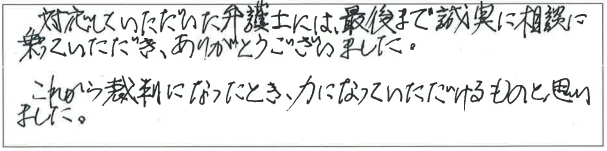 対応していただいた弁護士には、最後まで誠実に相談に
乗っていただき、ありがとうございました。
これから裁判になったとき、力になっていただけるものと思い
ました。